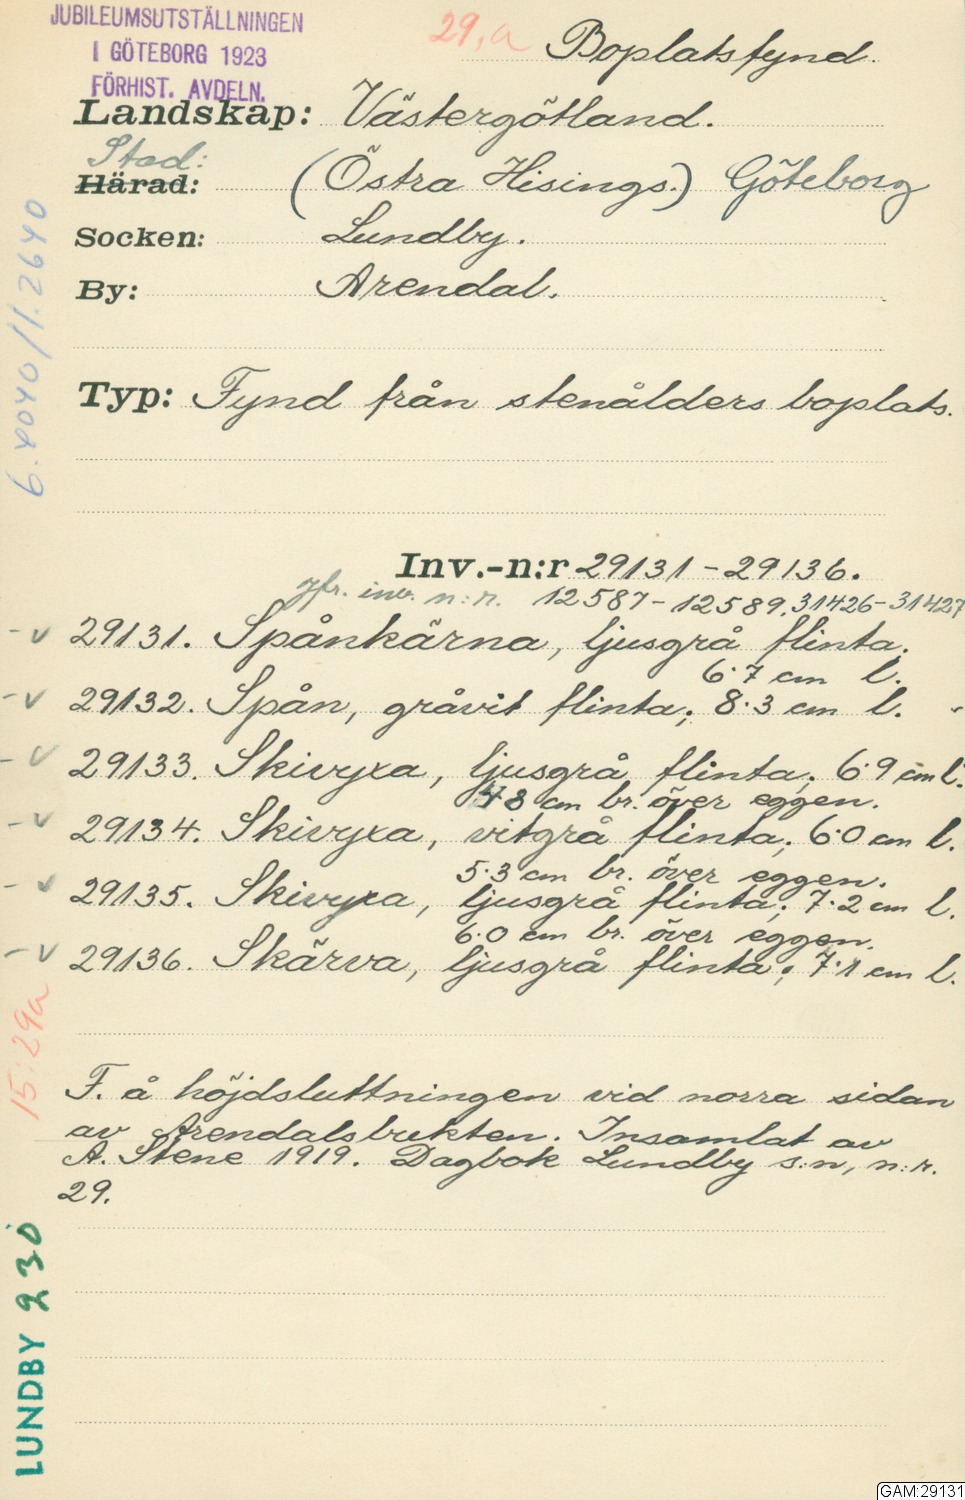 JUBILEUMSUTSTÄLLNINGEN
I GÖTEBORG 1923
FÖRHIST. AVDELN.
29,a Boplatsfynd.
Landskap: Västergötland.
Stad:
Härad: (Östra Hisings.) Göteborg
Socken: Lundby.
By: Arendal.
6.4040/1.2640
Typ: Fynd från stenålders boplats.
Inv.-n:r 29131-29136.
jfr. inv. n:r. 12587-12589. 31426-31427
29131. Spånkärna, ljusgrå flinta.
6.7 cm l.
29132. Spån, gråvit flinta; 8.3 cm l.
29133. Skivyxa, ljusgrå flinta; 6.9 cm l.
4.8 cm br. över eggen.
29134. Skivyxa, vitgrå flinta; 6.0 cm l.
5.3 cm br. över eggen.
29135. Skivyxa, ljusgrå flinta; 7.2 cm l.
6.0 cm br. över eggen.
29136. Skärva, ljusgrå flinta; 7.1 cm l.
15:29a
F. å höjdsluttningen vid norra sidan
av Arendalsbukten. Insamlat av
A. Stene 1919. Dagbok Lundby s:n, n:r.
29.
LUNDBY 230
GAM:29131